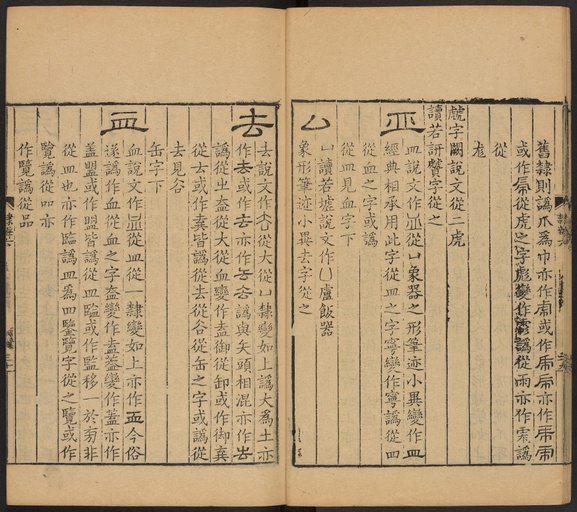 舊隸則譌爪爲巾亦作
或作從虍之字彪變作譌從雨亦作譌
從
虤
虤字闕說文從二虎
讀若䜣贙字從之
皿 皿說文作從凵象器之形筆迹小異變作皿
經典相承用此字從皿之字寧變作寧譌從四
從血之字或譌
從皿見血字下
凵 凵讀若墟說文作凵盧飯器
象形筆迹小異去字從之
去 去說文作從大從凵隸變如上譌大爲土亦
作去或作去亦作譌與矢頭相混亦作
譌從出盍從大從血變作盍御從卸或作御
從去或作皆譌從去從谷從缶之字或譌從
去見谷
缶字下
血 血說文作從皿從一隸變如上亦作今俗
遂譌作血從血之字盍變作盍蓋變作蓋亦作
盖盟或作盟皆譌從皿監或作監移一於旁非
從血也亦作臨譌皿爲四鑒覽字從之覽或作
覽譌從吅亦
作覽譌從品
隸辨六